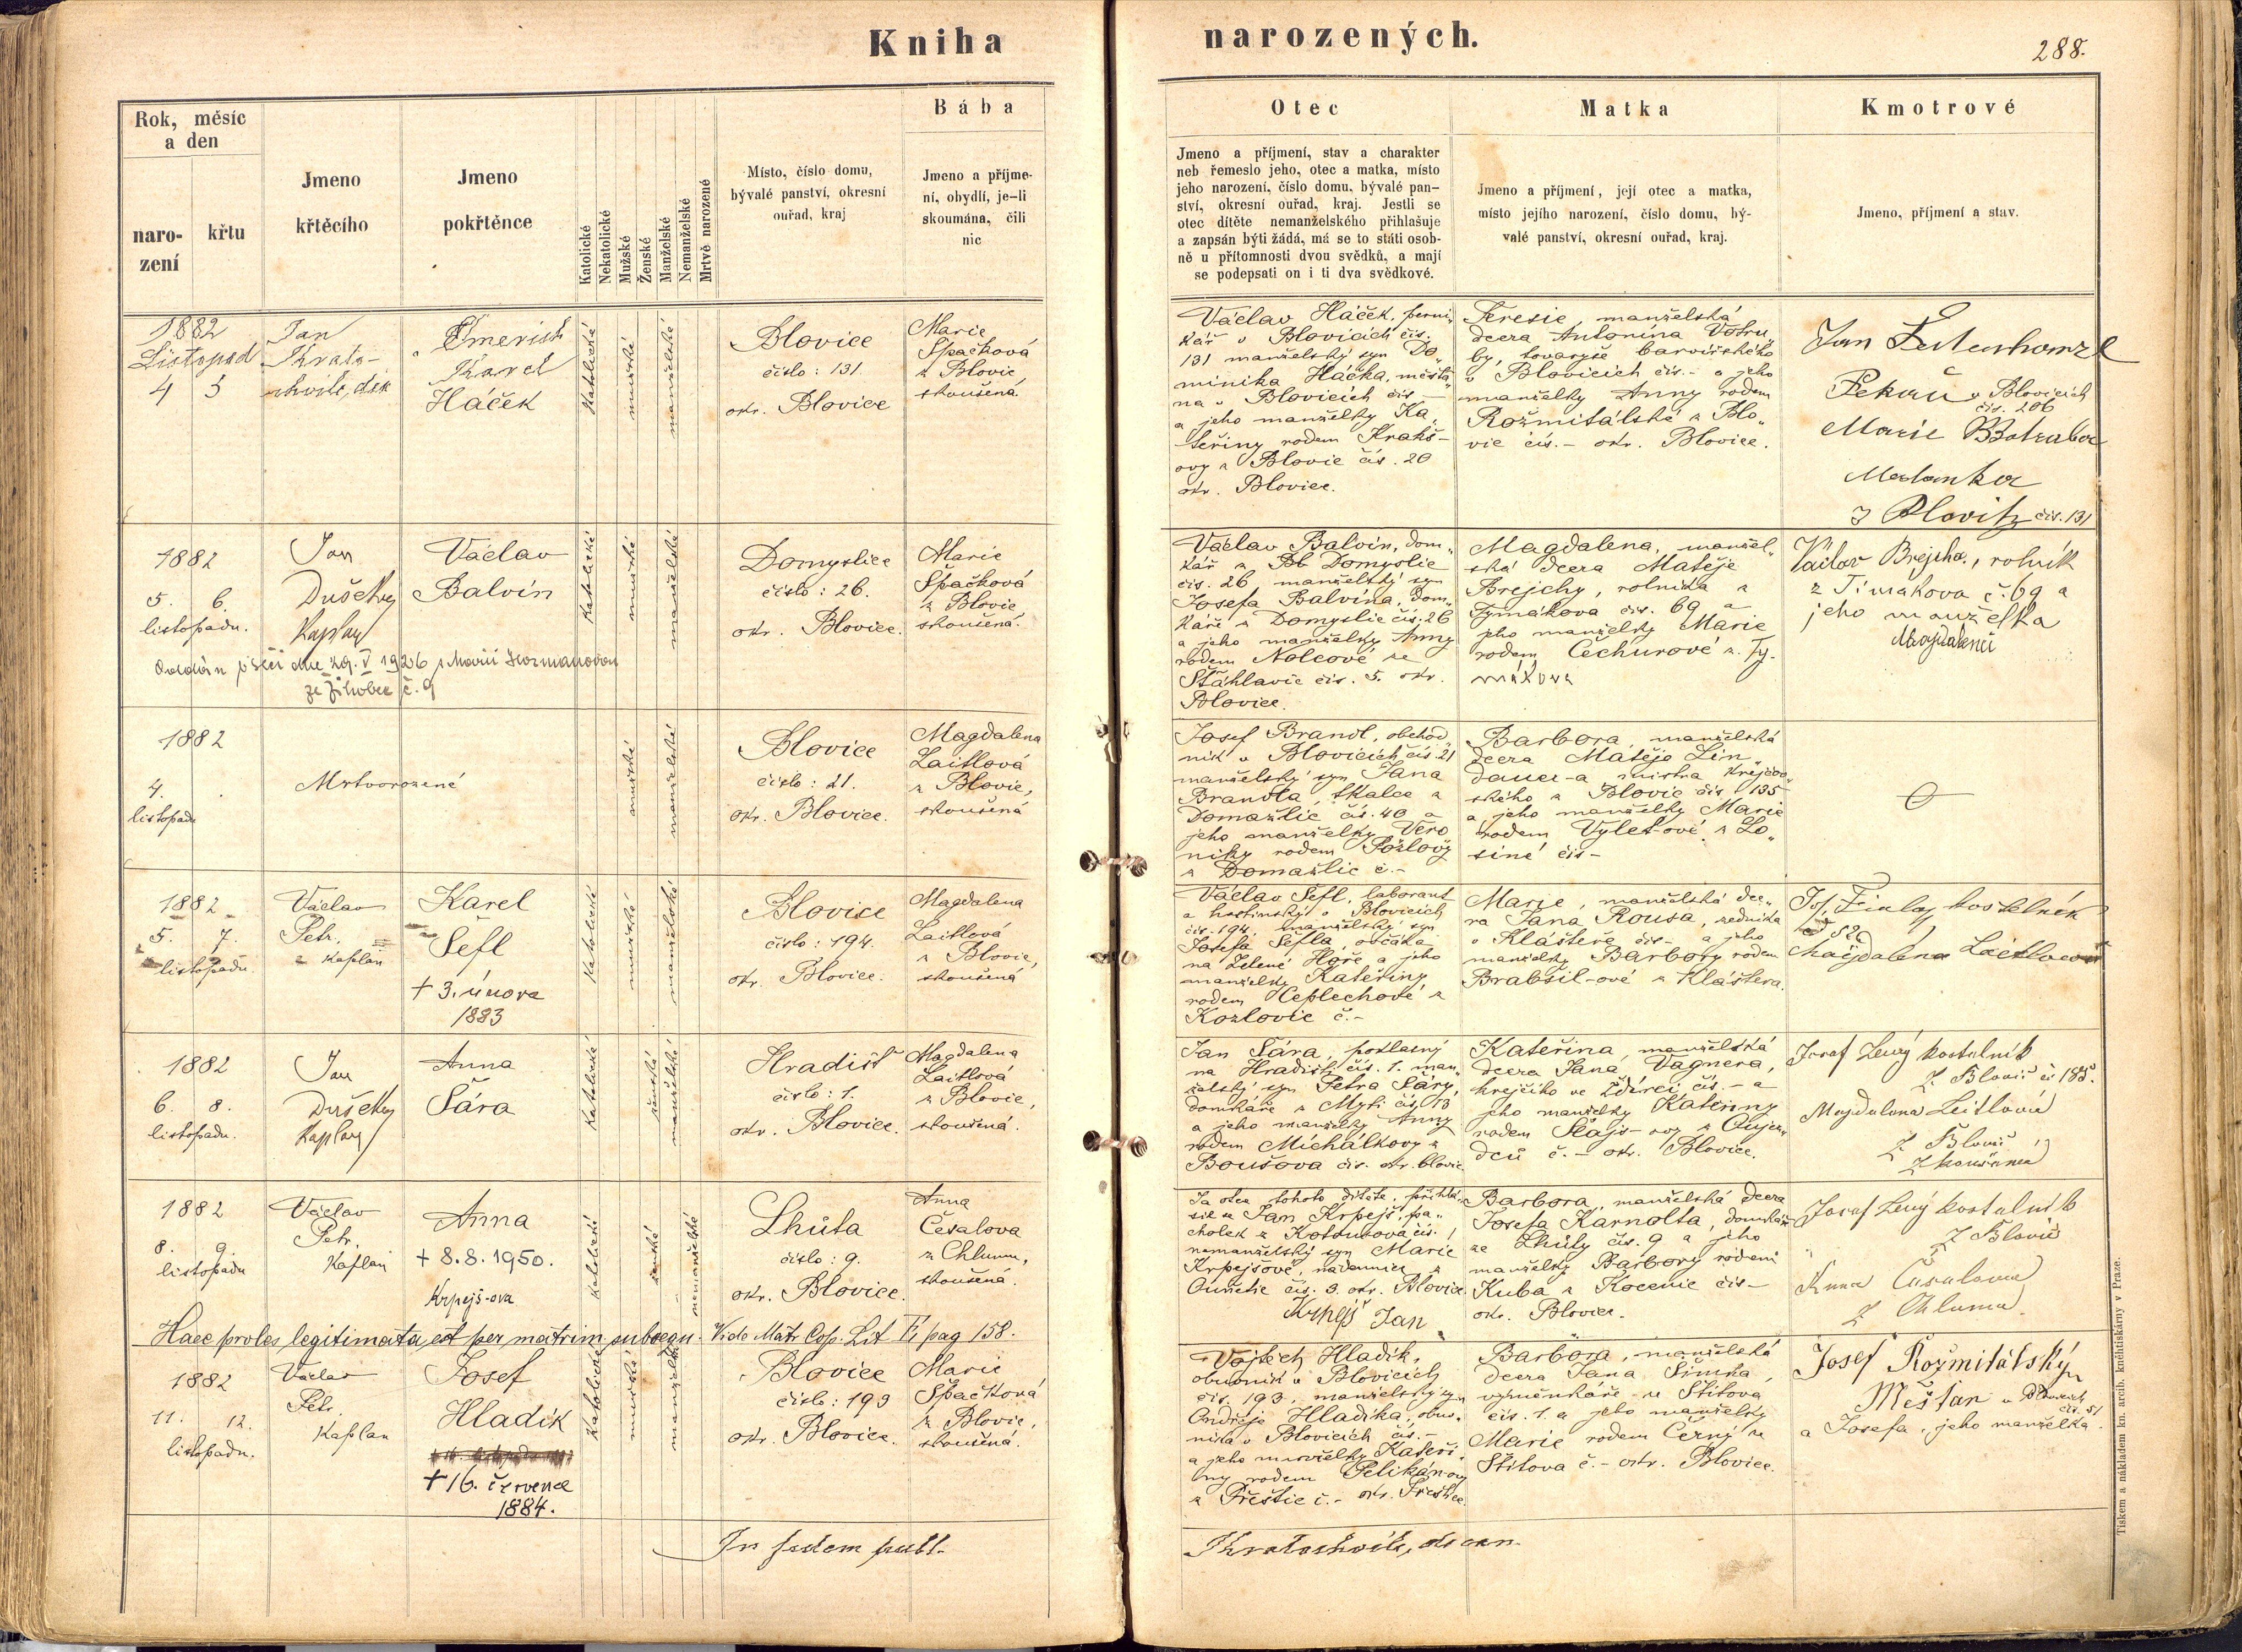 Kniha
narozených.
288.
Rok, měsíc
a den
naro-
zení
křtu
Jmeno
křtěcího
Jmeno
pokřtěnce
Katolické
Nekatolické
Mužské
Ženské
Manželské
Nemanželské
Mrtvě narozené
Místo, číslo domu,
bývalé panství, okresní
ouřad, kraj
Bába
Jmeno a příjme-
ní, obydlí, je-li
skoumána, čili
nic
Otec
Jmeno a příjmení, stav a charakter
neb řemeslo jeho, otec a matka, místo
jeho narození, číslo domu, bývalé pan-
ství, okresní ouřad, kraj. Jestli se
otec dítěte nemanželského přihlašuje
a zapsán býti žádá, má se to státi osob-
ně u přítomnosti dvou svědků, a mají
se podepsati on i ti dva svědkové.
Matka
Jmeno a příjmení, její otec a matka,
místo jejího narození, číslo domu, bý-
valé panství, okresní ouřad, kraj.
Kmotrové
Jmeno, příjmení a stav.
1882
Listopad
4 5
Jan
Krato-
chvile, děk
Emerich
Karel
Háček
Katolické
mužské
manželské
Blovice
číslo: 131
okr. Blovice
Marie
Špačková
z Blovic
zkoušená.
Václav Háček, perni-
kář v Blovicích čís.
131 manželský syn Do-
minika Háčka, měšťa-
na v Blovicích čís –
a jeho manželky Ka-
teřiny rodem Krakš-
ovy z Blovic čís. 20
okr. Blovice.
Teresie, manželská
dcera Antonína Votru-
by, tovaryše barvířského
v Blovicích čís. – a jeho
manželky Anny rodem
Rožmitálské z Blo-
vic čís. – okr. Blovice.
Jan
Pekař v Blovicích
čís. 206
Marie
z Blovitz čís. 131
1882
5. 6.
listopadu.
Jan
Dušek
Kaplan
Václav
Balvín
Katolické
mužské
manželské
Domyslice
číslo: 26.
okr. Blovice.
Marie
Špačková
z Blovic,
zkoušená.
Oddán dne 29. V 1926 s Marií
ze Žihobce č. 9
Václav Balvín, dom-
kář z Domyslic
čís. 26, manželský syn
Josefa Balvína, dom-
káře z Domyslic čís. 26
a jeho manželky Anny
rodem Nolcové ze
Štáhlavic čís. 5. okr.
Blovice.
Magdalena, manžel-
ská dcera Matěje
Brejchy, rolníka z
Tymákova čís. 69 a
jeho manželky Marie
rodem Čechurové z Ty-
mákova
Václav Brejcha, rolník
z Tímakova č. 69 a
jeho manželka
Magdalena
1882
4.
listopadu
Mrtvorozené
mužské
manželské
Blovice
číslo: 21.
okr. Blovice.
Magdalena
Laitlová
z Blovic,
zkoušená
Josef Brandl, obchod-
ník v Blovicích čís. 21
manželský syn Jana
Brandla, tkalce z
Domažlic čís. 40 a
jeho manželky Vero-
niky rodem
z Domažlic č. –
Barbora, manželská
dcera Matěje Lin-
dauer-a mistra krejčov-
ského z Blovic čís 135
a jeho manželky Marie
rodem Vylet-ové z Lo-
siné čís –
1882
5. 7.
listopadu.
Václav
Petr,
kaplan
Karel
Šefl
+ 3. února
1883
Katolické
mužské
manželské
Blovice
číslo: 194.
okr. Blovice.
Magdalena
Laitlová
z Blovic,
zkoušená
Václav Šefl, laborant
a hostinský v Blovicích
čís. 194. manželský syn
Josefa Šefla, ovčáka
na Zelené Hoře a jeho
manželky Kateřiny
rodem Ceplechové z
Kozlovic č. –
Marie, manželská dce-
ra Jana Rousa, zedníka
v Klášteře čís – a jeho
manželky Barbory rodem
Brabčil-ové z Kláštera.
Jos. kostelník
Magdaléna Laitlová
1882
6. 8.
listopadu.
Jan
Dušek
Kaplan
Anna
Šára
Katolické
ženské
manželské
Hradišť
číslo: 1.
okr. Blovice.
Magdalena
Laitlová
z Blovic,
zkoušená.
Jan Šára, poklasný
na Hradišti čís. 1. man-
želský syn Petra Šáry,
domkáře z Mýti čís. 13
a jeho manželky Anny
rodem Michálkovy z
Boušova čís. okr. Blovic
Kateřina, manželská
dcera Jana Vagnera,
krejčího ve Ždírci čís. – a
jeho manželky Kateřiny
rodem Šlajs-ovy z Oujez-
dců č. – okr. Blovice.
Josef Levý kostelník
z Blovic č. 185.
Magdalena Leitlová
z Blovic
zkoušená
1882
8. 9.
listopadu
Václav
Petr,
Kaplan
Anna
+ 8.8.1950.
Krpejš-ova
Katolické
ženské
nemanželské
Lhůta
číslo: 9.
okr. Blovice.
Anna
Česalova
z Chlumu,
zkoušená.
Za otce tohoto dítěte přihlá-
sil se Jan Krpejš, pa-
cholek z Kotousova čís. 1
nemanželský syn Marie
Krpejšové, nádennice z
Ounětic čís. 3. okr. Blovice
Krpejš Jan
Barbora, manželská dcera
Josefa Karnolta, domkáře
ze Lhůty čís. 9 a jeho
manželky Barbory rodem
Kuba z Kocenic čís –
okr. Blovice.
Josef Levý kostelník
z Blovic
Anna Česalova
z Chluma.
Haec proles legitimata est per matrim. subsequ. Vide Matr. Cop. Lit. F, pag 158.
1882
11. 12.
listopadu.
Václav
Petr
Kaplan
Josef
Hladík
+ 16. července
1884.
Katolické
mužské
manželské
Blovice
číslo: 193
okr. Blovice.
Marie
Špačková
z Blovic,
zkoušená.
Vojtěch Hladík,
obuvník v Blovicích
čís. 193. manželský syn
Ondřeje Hladíka, obuv-
níka v Blovicích čís. –
a jeho manželky Kateři-
ny rodem Pelikán-ovy
z Přeštic č. – okr. Přeštice.
Barbora, manželská
dcera Jana Šimka,
výměnkáře ze Štítova
čís. 1. a jeho manželky
Marie rodem Černý ze
Štítova č. – okr. Blovice.
Josef Rožmitálský
Měšťan v Blovicích
čís. 51
a Josefa, jeho manželka.
In fidem publ.
Kratochvile, decan.
Tiskem a nákladem kn. arcib. knihtiskárny v Praze.